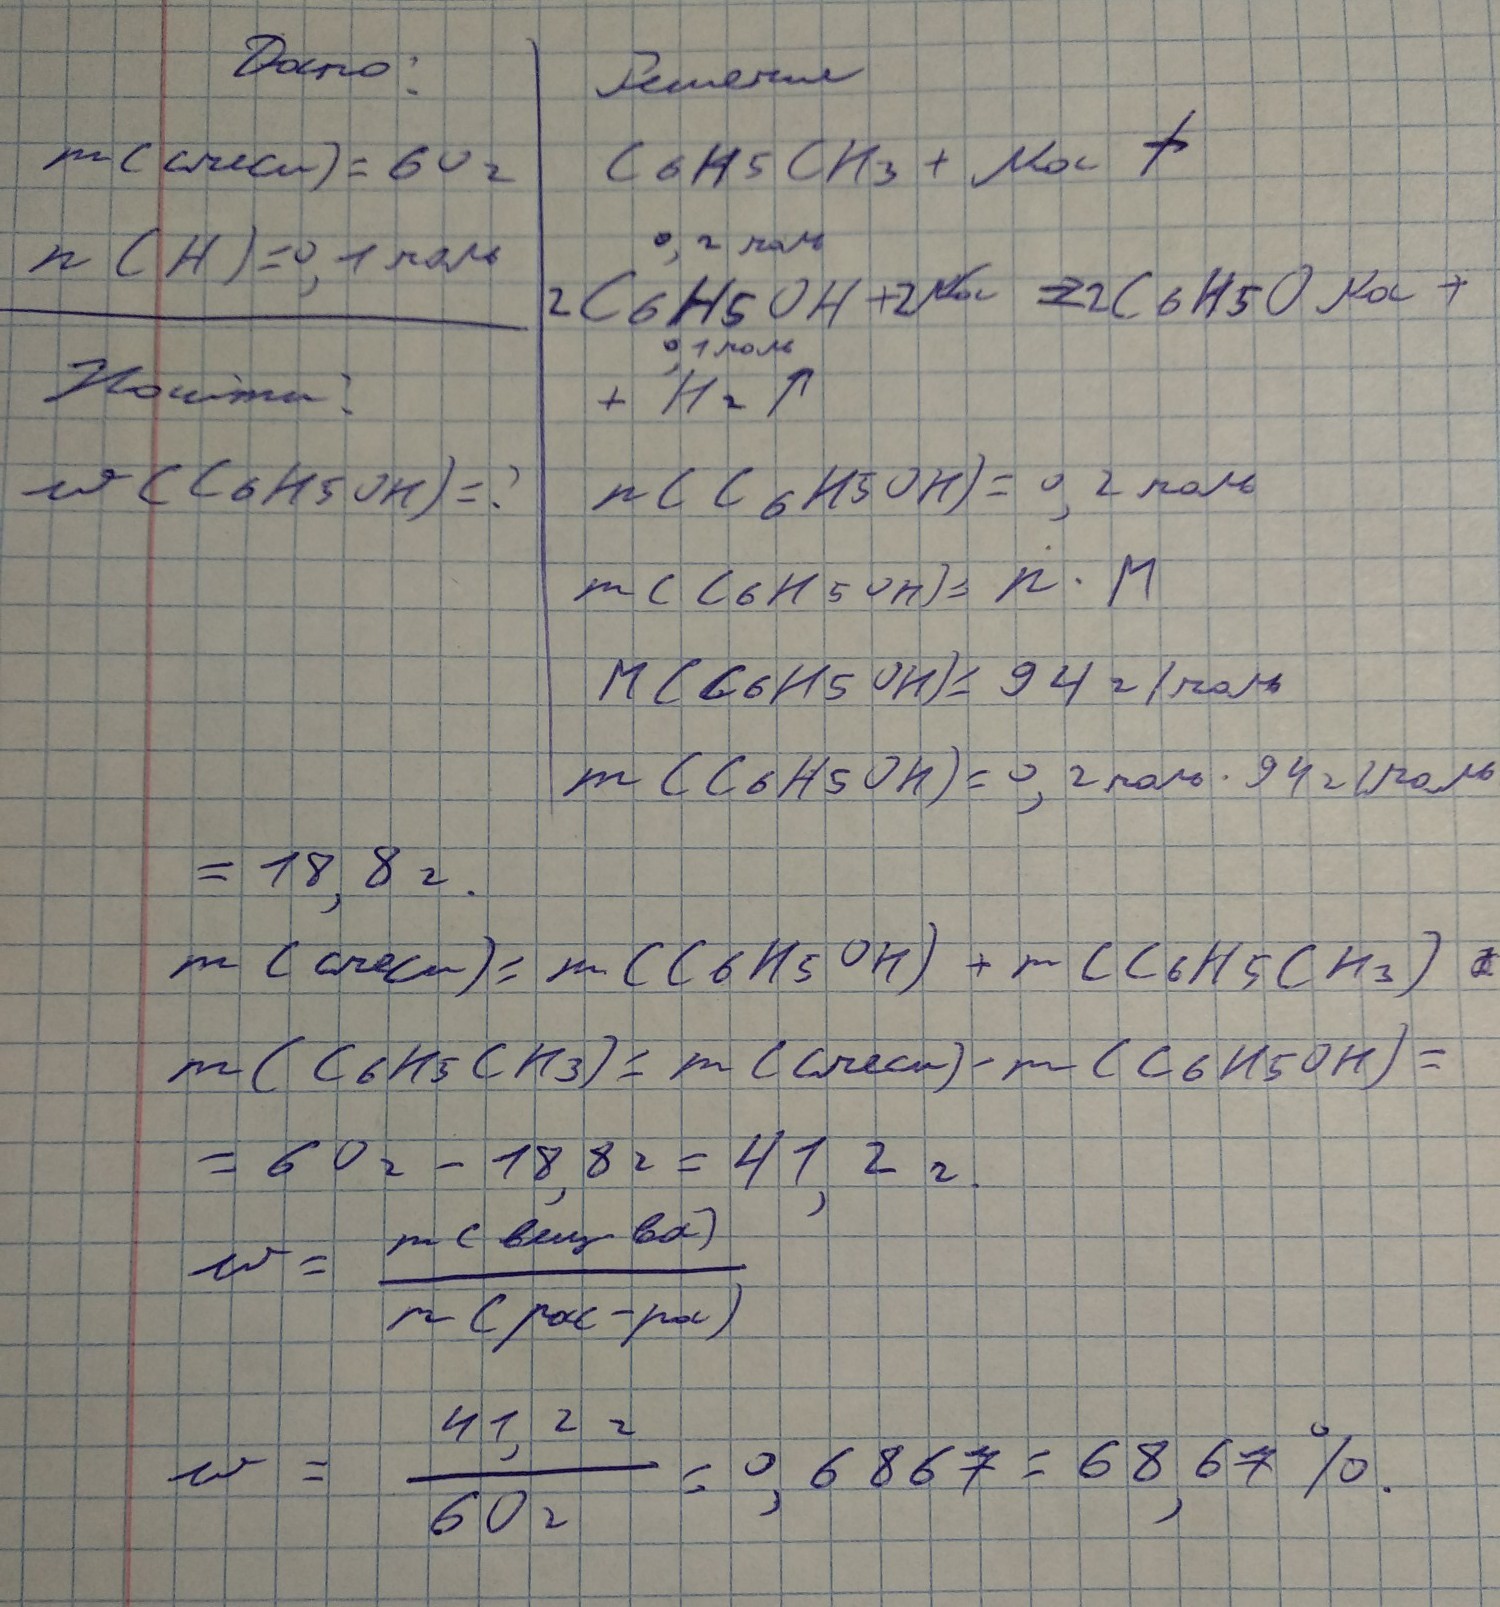 Дано:
Решение
m(смеси)=60г
C6H5CH3 + Na ↛
n(H)=0,1 моль
0,2 моль
2C6H5OH+2Na =2C6H5ONa +
0,1 моль
+ H2↑
Найти:
w(C6H5OH)=?
n(C6H5OH)=0,2 моль
m(C6H5OH)= n · M
M(C6H5OH)= 94 г/моль
m(C6H5OH)=0,2 моль · 94 г/моль
= 18,8 г.
m(смеси)= m(C6H5OH) + m(C6H5CH3)
m(C6H5CH3)= m(смеси)-m(C6H5OH)=
= 60г - 18,8г = 41,2 г.
w = m(вещ-ва)
m(рас-ра)
w = 41,2 г
60г
= 0,6867 = 68,67 %.